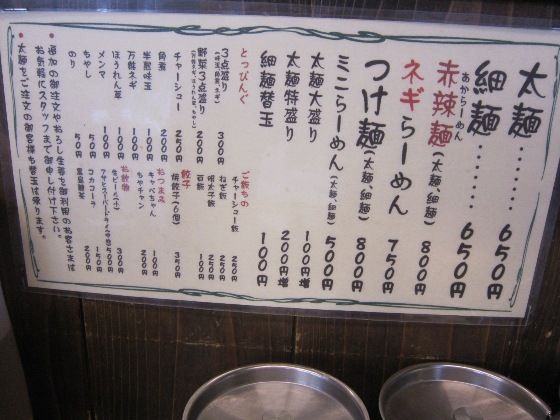 太麺‥‥‥650円
細麺‥‥‥650円
あからーめん
赤辣麺(太麺、細麺) 800円
ネギらーめん 750円
つけ麺(太麺、細麺) 800円
ミニらーめん(太麺、細麺) 500円
太麺大盛り 100円増
太麺特盛り 200円増
細麺替玉 100円
とっぴんぐ
3点盛り 300円
野菜3点盛り 200円
(万能ネギ、ほうれん草、もやし)
チャーシュー 250円
角煮 200円
半熟味玉 100円
万能ネギ 100円
ほうれん草 100円
メンマ 100円
もやし 50円
のり 50円
ご飯もの
チャーシュー飯 250円
ねぎ飯 250円
明太子飯 250円
白飯 100円
餃子
焼餃子(6個) 350円
おつまみ
キャベちゃん 100円
もやチャン 200円
お飲物
生ビール(小) 300円
アサヒスーパードライ(中瓶) 500円
コカコーラ 150円
黒烏龍茶 200円
・追加の御注文やおろし生姜を御利用のお客さまは
お気軽にスタッフまで御申し付け下さい。
・太麺をご注文の御客様も替玉は承ります。